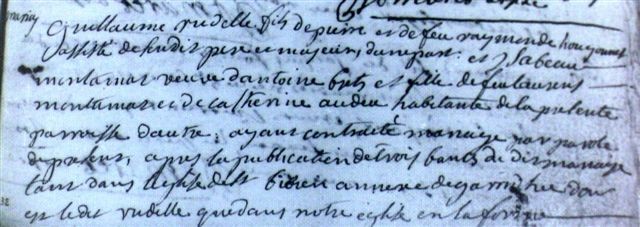 Guillaume rudelle fils de pierre et de feu raymonde
assisté de sondit pere et majeur dune part et Isabeau
montamat veuve dantoine et fille de feu laurens
montamat et de catherine audeu habitante de la presente
paroisse dautre, ayant contracté mariage par parole
de presens, apres la publication de trois bans du dit mariage
tant dans leglise de st annexe de dou
est ledit rudelle que dans notre eglise en la forme